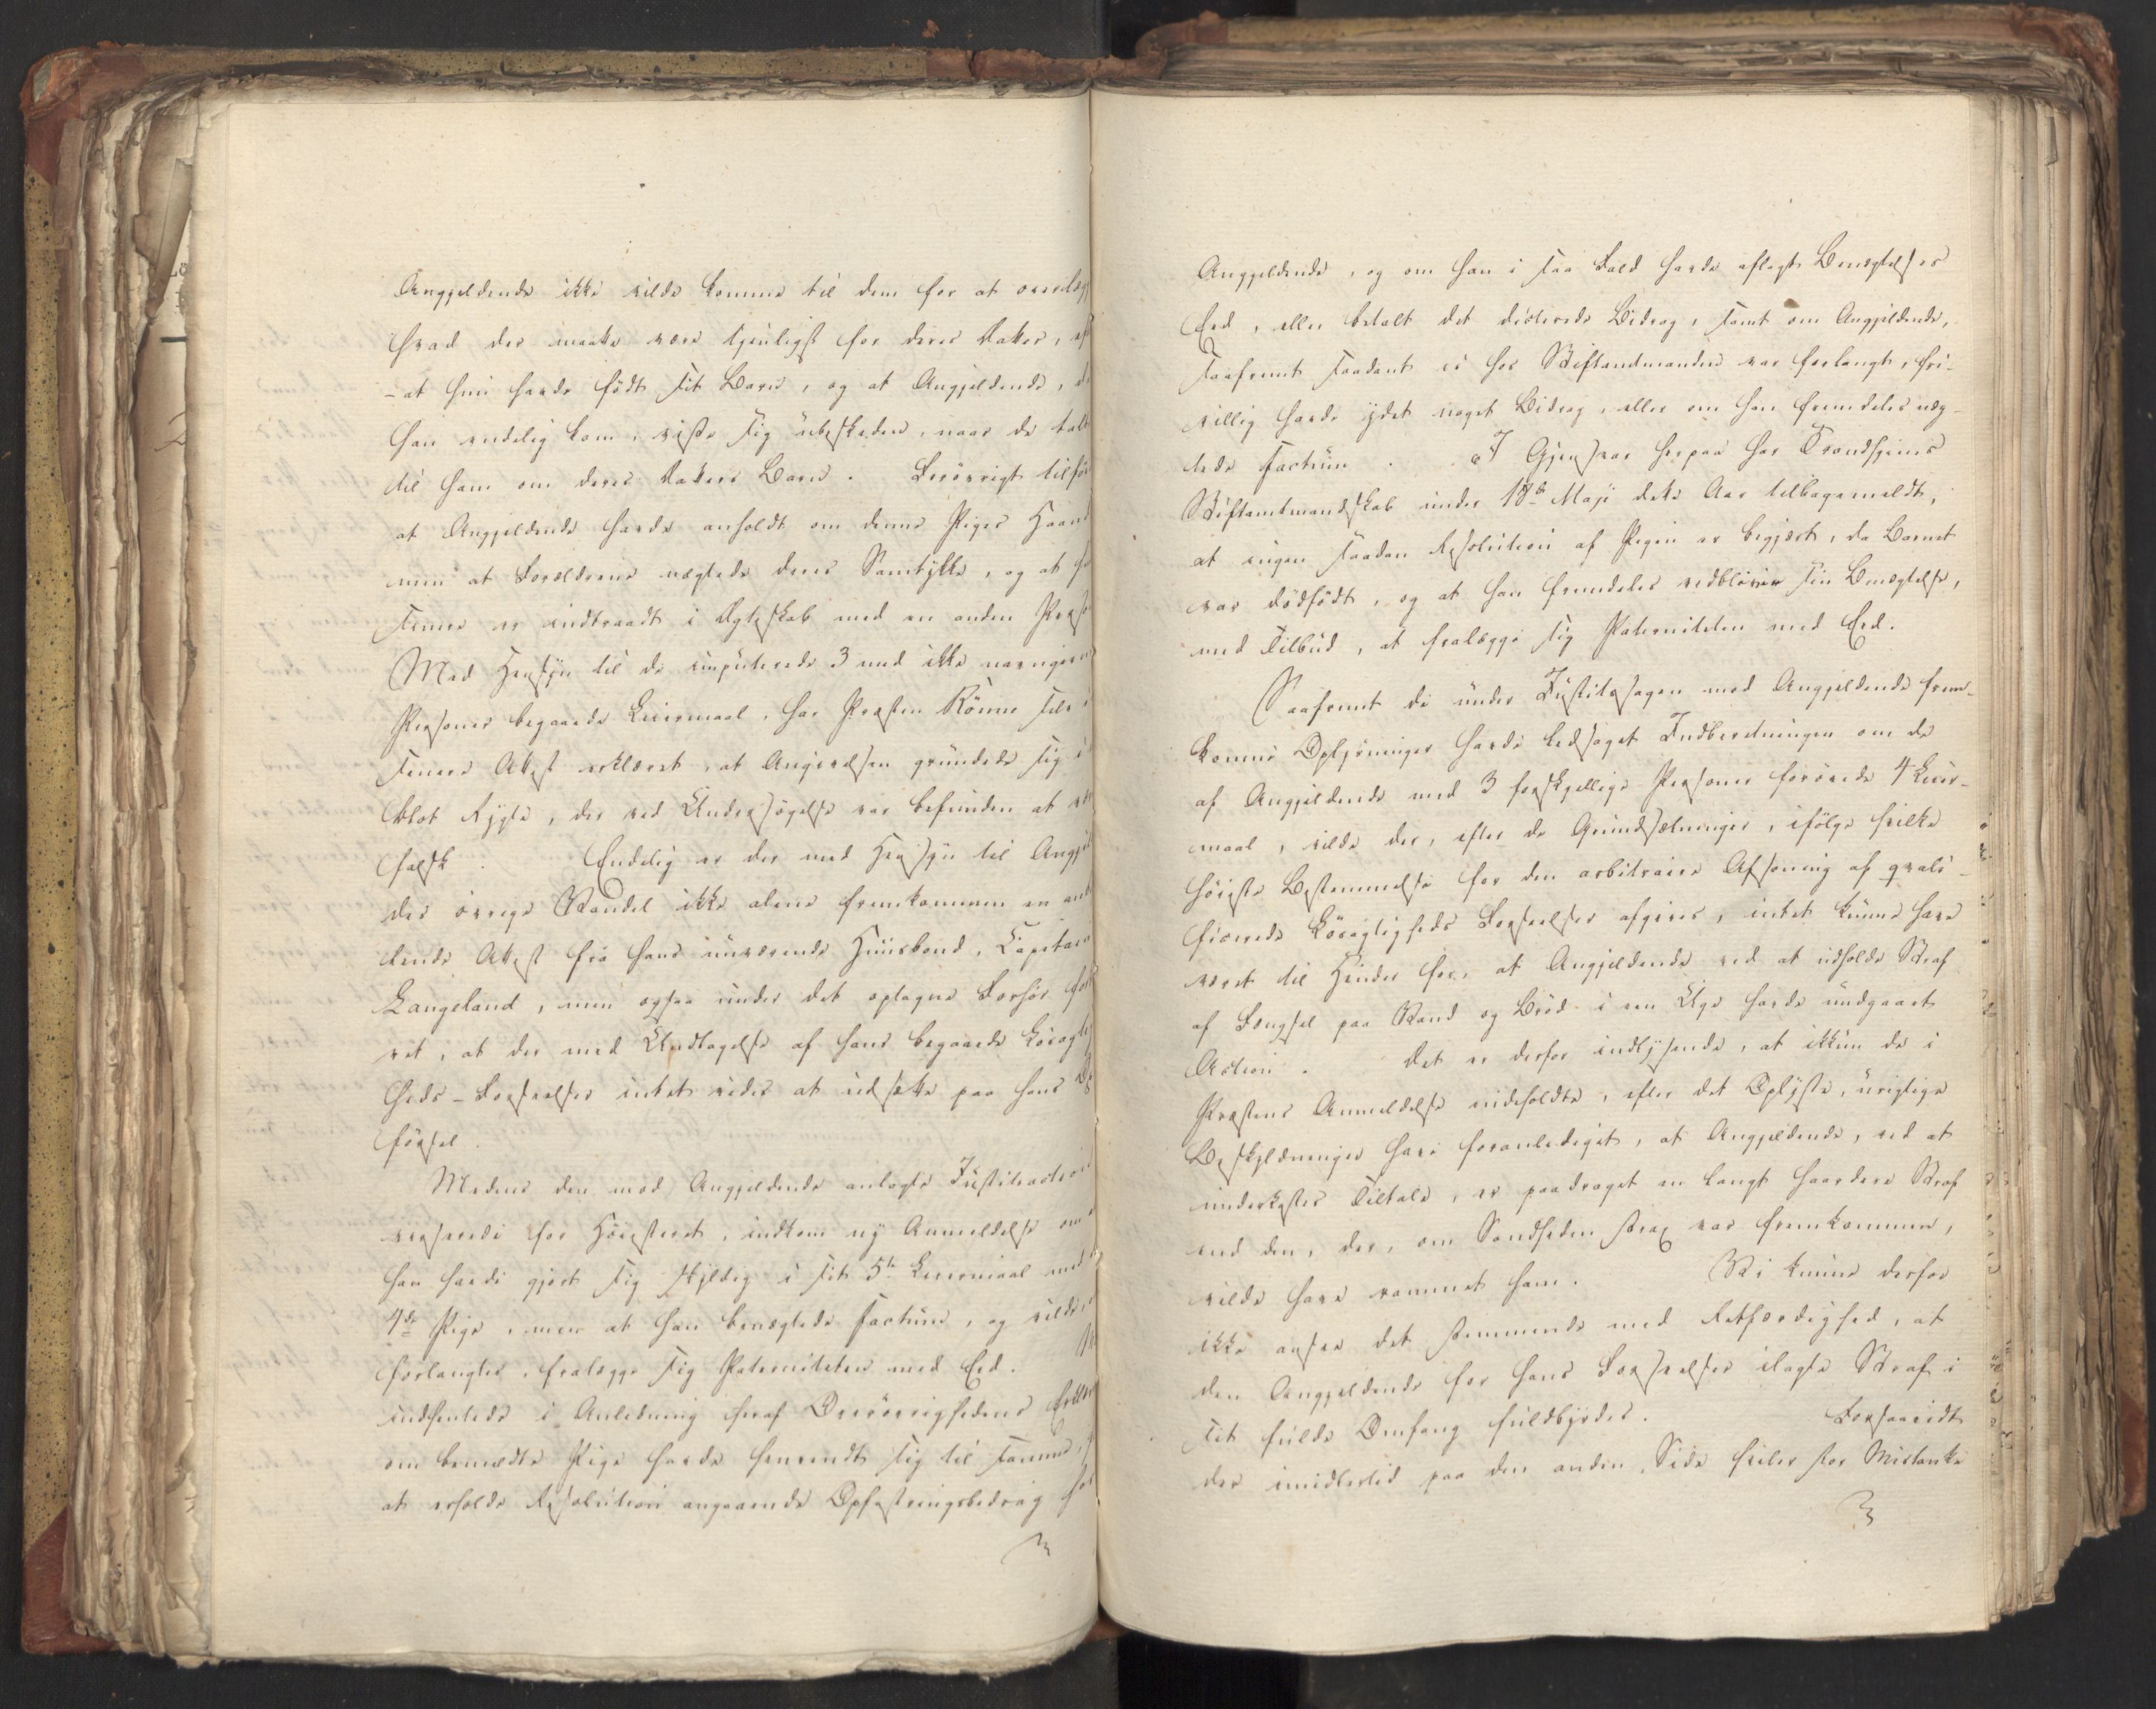 Angjeldende ikke vilde komme til dem for at overlæg
hvad der maatte være tjenligst for deres Datter, ef
-at hun havde födt sit Barn, og at Angjeldende, d
han endelig kom, viste sig ubeskeden, naar de talt
til ham om deres Datters Barn. Forövrigt tilför
at Angjeldende havde anholdt om denne Piges Haand
men at Forældrene nægtede deres Samtykke, og at h
senere er indtraadt i Ægteskab med en anden Pers
Med Hensyn til de imputerede 3 med ikke navngivn
Personer begaaede Leiermaal, har Præsten Rönne selv i
senere Attest erklæret, at Angivelsen grundede sig i
blot Rygte, der ved Undersögelse var befunden at vær
falsk. Endelig er der med Hensyn til Angjel
des övrige Vandel ikke alene fremkommen en anbe
lende Attest fra hans nuværende Huusbond, Capitain
Langeland, men ogsaa under det optagne Forhör for
ret, at der med Undtagelse af hans begaaede Lösagtig
heds-Forseelser intet vides at udsætte paa hans Op
försel.
Medens den mod Angjeldende anlagte Justitsaction
verserede for Höiesteret, indkom ny Anmeldelse om
han havde gjort sig skyldig i sit 5te Leiermaal med
4de Pige, men at han benægtede factum, og vilde,
forlangtes, fralægge sig Paterniteten med Eed.
indhentede i Anledning heraf Överövrighedens Erklær
om bemeldte Pige havde henvendt sig til samme,
at erholde Resolution angaaende Opfostringsbidrag hos
Angjeldende, og om han i saa Fald havde aflagt Benægtelses
Eed, eller betalt det dicterede Bidrag, samt om Angjeldende,
saafremt saadant ei hos Stiftamtmanden var forlangt, fri-
villig havde ydet noget Bidrag, eller om han fremdeles næg-
tede factum. I Gjensvar herpaa har Trondhjems
Stiftamtmandskab under 18de Maji dette Aar tilbagemeldt,
at ingen saadan Resolution af Pigen er begjært, da Barnet
var dödfödt, og at han fremdeles vedbliver sin Benægtelse,
med Tilbud, at fralægge sig Paterniteten med Eed.
Saafremt de under Justitssagen mod Angjeldende frem-
komne Oplysninger havde ledsaget Indberetningen om de
af Angjeldende med 3 forskjellige Personer forövede 4 Leier-
maal, vilde der, efter de Grundsætninger, ifölge hvilke
höieste Bestemmelse for den arbitraire Afsoning af qvali-
ficerede Lösagtigheds Forseelser afgives, intet kunne have
været til Hinder for, at Angjeldende ved at udholde Straf
af Fængsel paa Vand og Bröd i een Uge havde undgaaet
Action. Det er derfor indlysende, at ikkun de i
Præstens Anmeldelse indeholdte, efter det Oplyste, urigtige
Beskyldninger have foranlediget, at Angjeldende, ved at
underkastes Tiltale, er paadraget en langt haardere Straf
end den, der, om Sandheden strax var fremkommen,
vilde have rammet ham. Vi kunne derfor
ikke ansee det stemmende med Retfærdighed, at
den Angjeldende for hans Forseelser ilagte Straf i
sit fulde Omfang fuldbyrdes. Forsaavidt
der imidlertid paa den anden Side hviler stor Mistanke